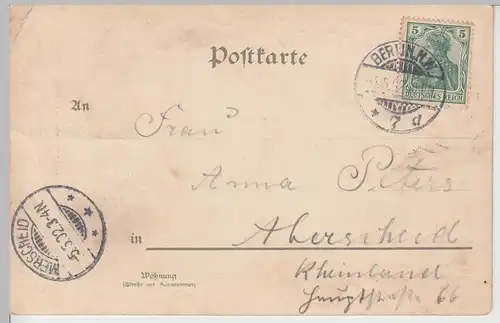 Postkarte
5 5
DEUTSCHES REICH
BERLIN N.W.
An
Frau
Anna Peters
MERSCHEID
5.5.02.3-4N
in Aberscheid
Wohnung
(Straße und Hausnummer)
Rheinland
Hauptstraße 66